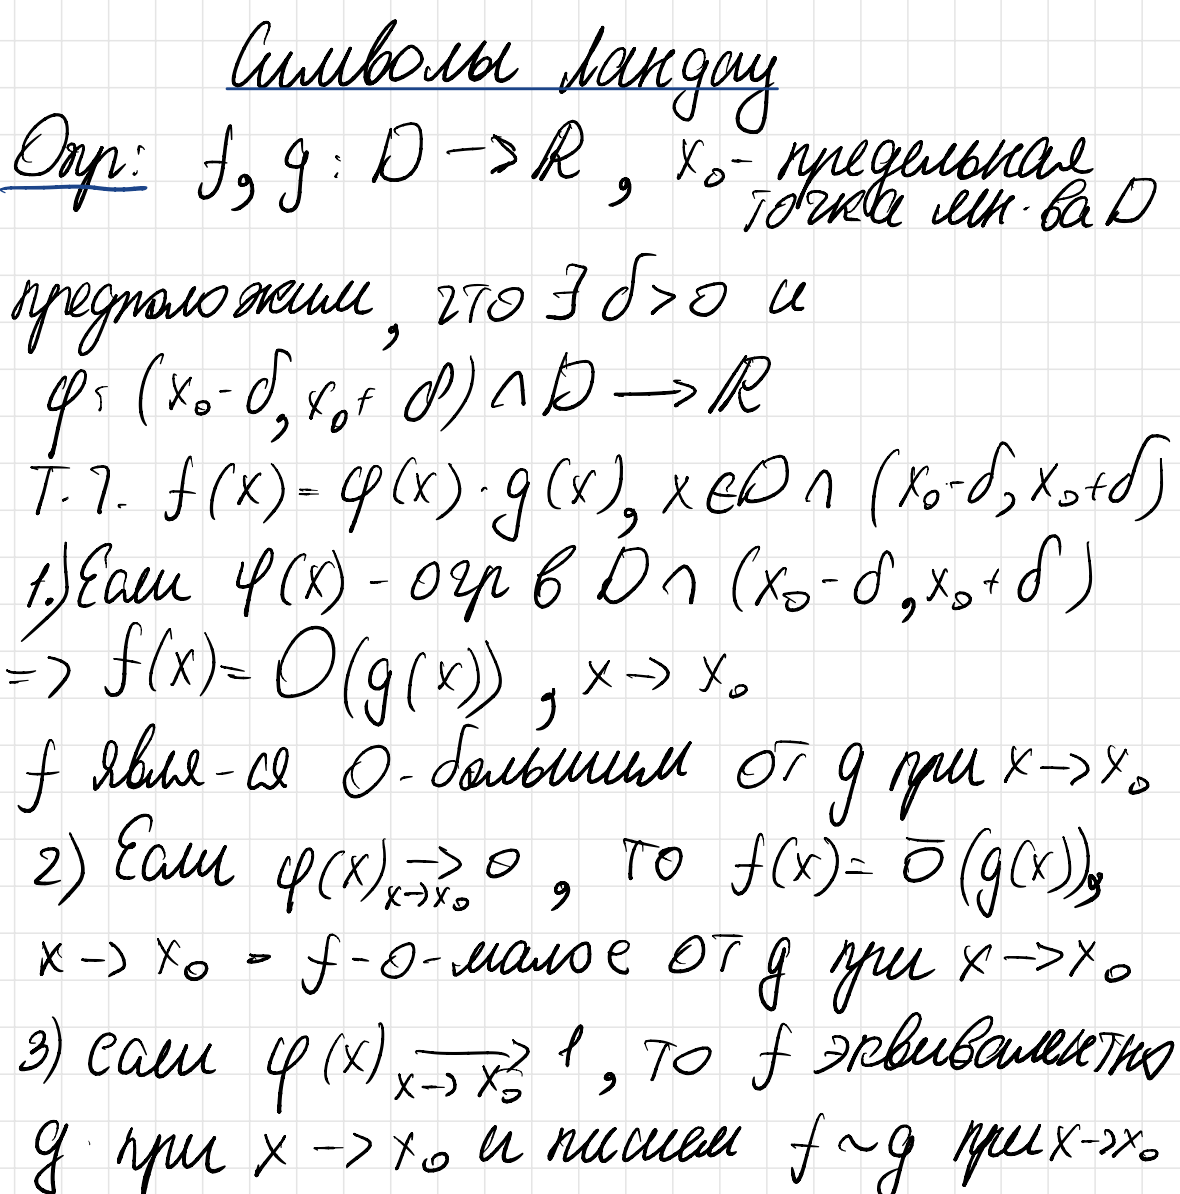 Символы Ландау
Опр: f, g : D -> ℝ , x₀ - предельная
точка мн-ва D
предположим, что ∃ δ > 0 и
φ: (x₀ - δ, x₀ + δ) ∩ D -> ℝ
т. ч. f(x) = φ(x) · g(x), x ∈ D ∩ (x₀ - δ, x₀ + δ)
1.) Если φ(x) - огр в D ∩ (x₀ - δ, x₀ + δ)
=> f(x) = O(g(x)) , x -> x₀
f явля-ся O-большим от g при x -> x₀
2) Если φ(x) ->_{x -> x₀} 0 , то f(x) = o̅(g(x)),
x -> x₀ - f - o-малое от g при x -> x₀
3) если φ(x) ->_{x -> x₀} 1 , то f эквивалентно
g при x -> x₀ и пишем f ~ g при x -> x₀